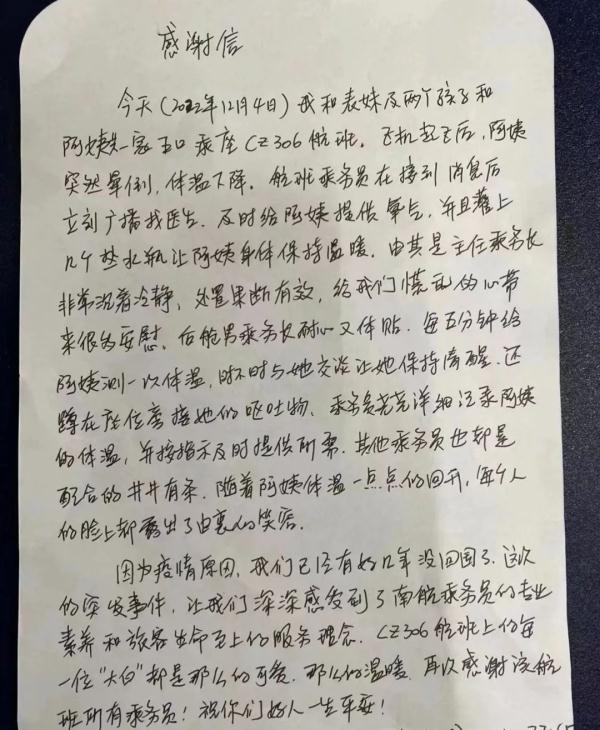 感谢信
今天(2022年12月4日)我和表妹及两个孩子和
阿姨一家五口乘座CZ306航班。飞机起飞后,阿姨
突然晕倒,体温下降。航班乘务员在接到消息后
立刻广播找医生,及时给阿姨提供氧气,并且灌上
几个热水瓶让阿姨身体保持温暖。由其是主任乘务长
非常沉着冷静,处置果断有效,给我们慌乱的心带
来很多安慰。后舱男乘务长耐心又体贴。每五分钟给
阿姨测一次体温,时不时与她交谈让她保持清醒。还
蹲在座位旁接她的呕吐物。乘务员详细记录阿姨
的体温,并按指示及时提供所需。其他乘务员也都是
配合的井井有条。随着阿姨体温一点点的回升,每个人
的脸上都露出了由衷的笑容。
因为疫情原因,我们已经有好几年没回国了。这次
的突发事件,让我们深深感受到了南航乘务员的专业
素养和旅客生命至上的服务理念。CZ306航班上的每
一位“大白”都是那么的可爱,那么的温暖。再次感谢该航
班所有乘务员!祝你们好人一生平安!